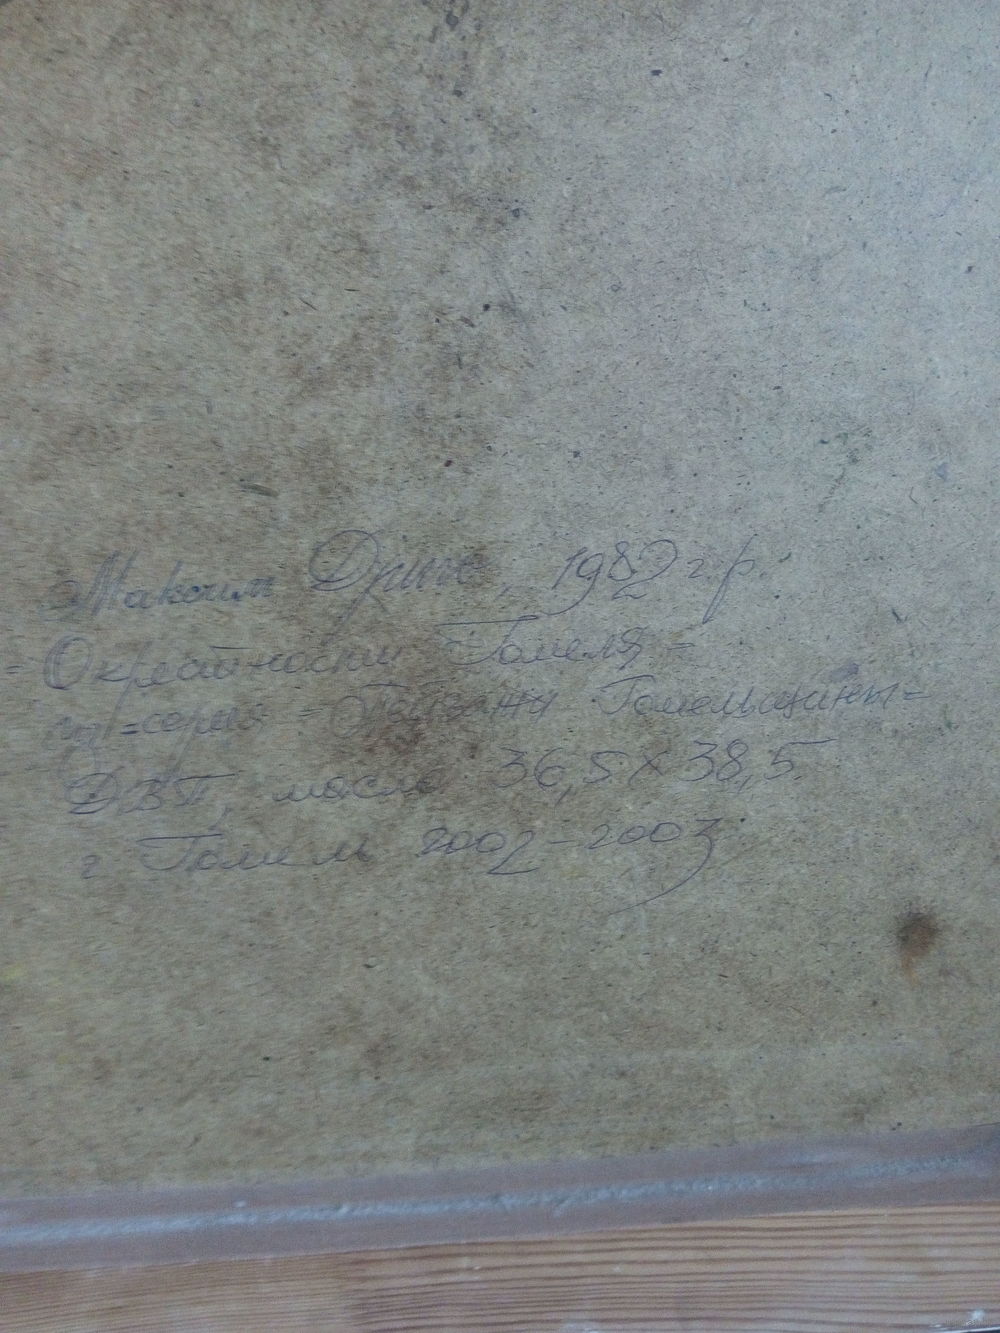 Максим , 1982 г.р.
= Окрестности Гомеля =
= серия = Пейзажи Гомельщины =
ДВП, масло 36,5 x 38,5
г Гомель 2002-2003